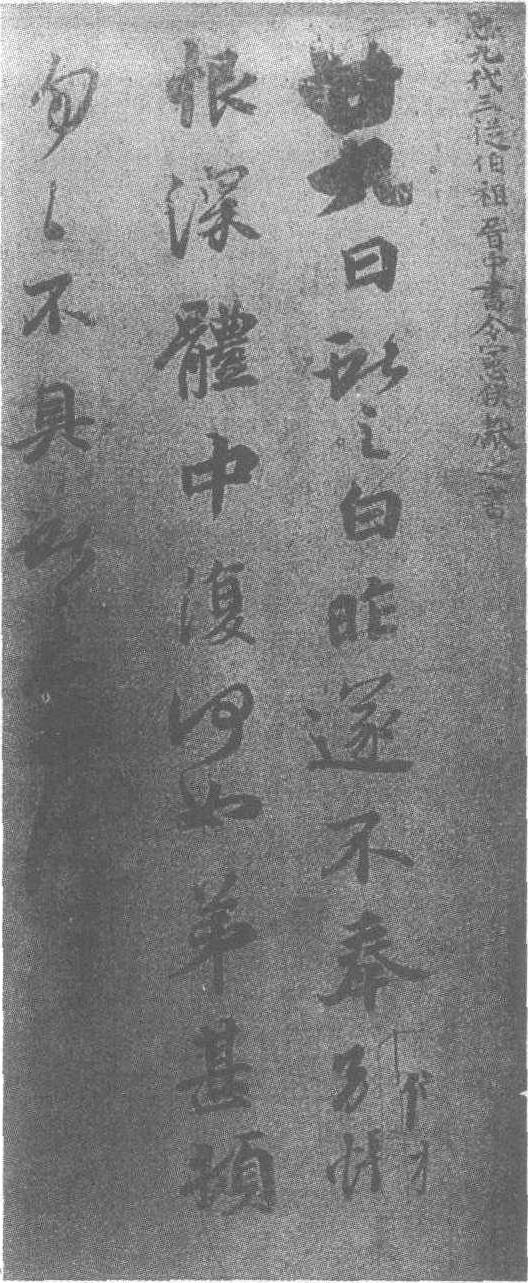 臣九代三從伯祖晉中書令憲侯獻之書
廿九日獻之白昨遂不奉別悵
恨深體中復何如弟甚頓
匆匆不具獻之